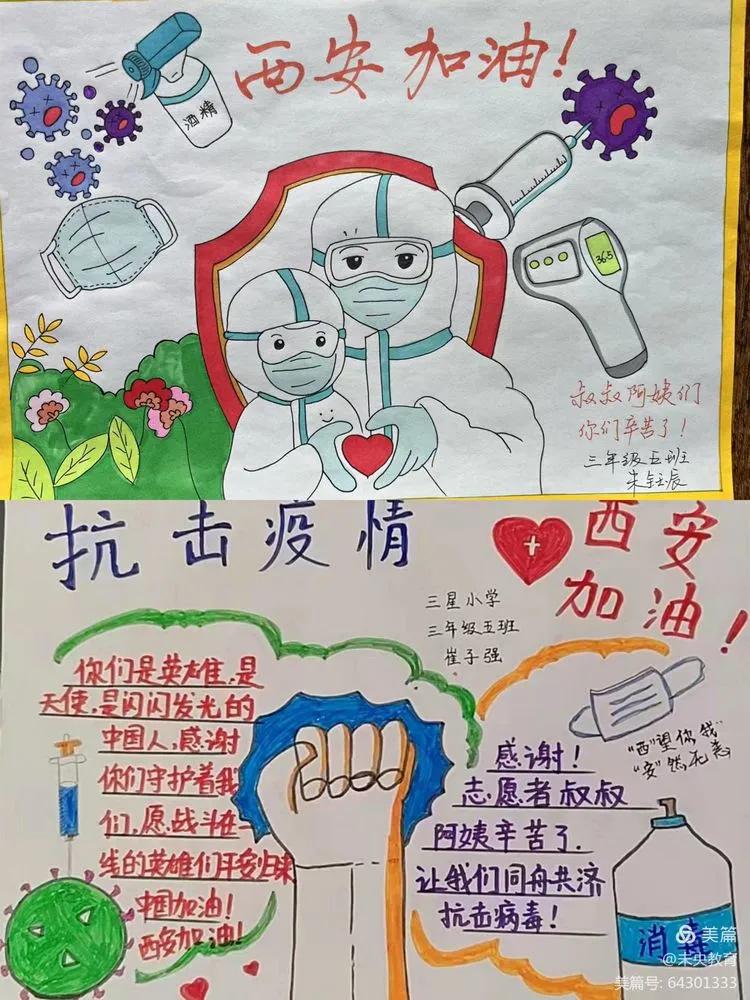 西安加油!
酒精
36.5
叔叔阿姨们
你们辛苦了!
三年级五班
朱钰辰
抗击疫情
西安
加油!
三星小学
三年级五班
崔子强
你们是英雄,是
天使,是闪闪发光的
中国人,感谢
你们守护着我
们,愿战斗在一
线的英雄们平安归来
中国加油!
西安加油!
"西"望你我
"安"然无恙
感谢!
志愿者叔叔
阿姨辛苦了.
让我们同舟共济
抗击病毒!
消毒
美篇
@未央教育
美篇号: 64301333